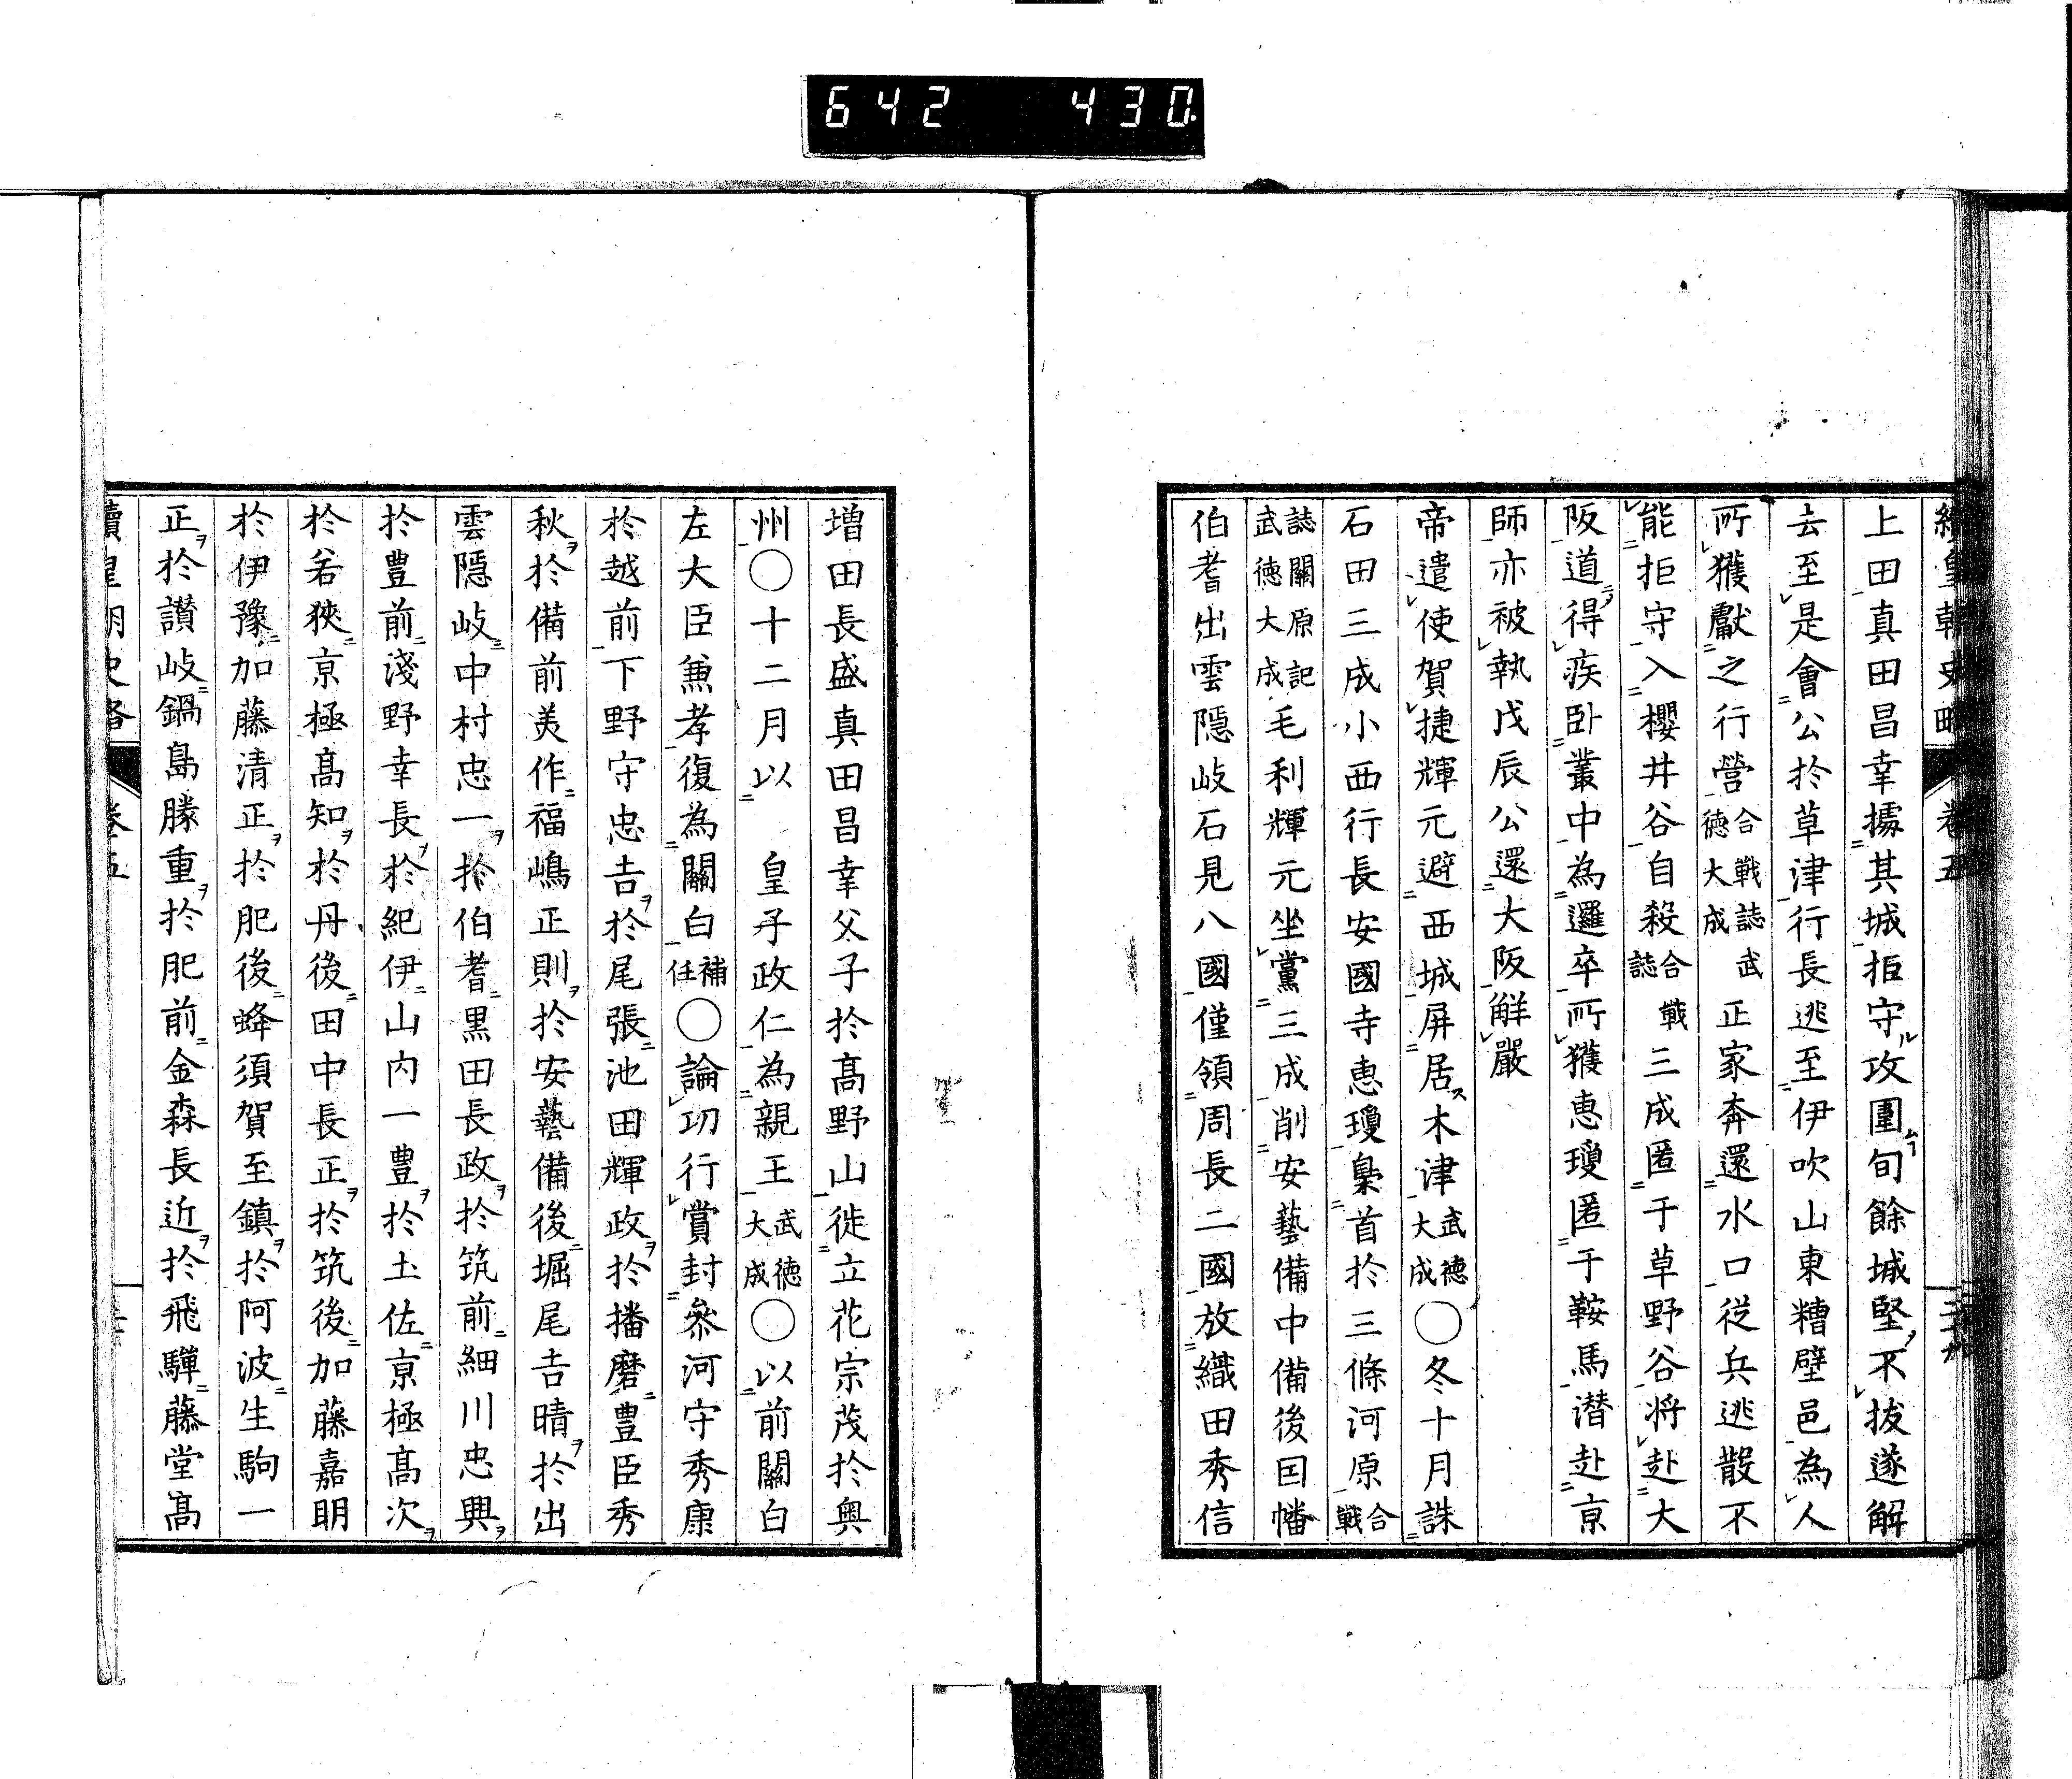 642 430
續皇朝史略 卷五 二十九
上田真田昌幸據其城拒守攻圍旬餘城堅不拔遂解
去至是會公於草津行長逃至伊吹山東糟壁邑為人
所獲獻之行營合戰誌武德大成正家奔還水口從兵逃散不
能拒守入櫻井谷自殺合戰誌三成匿于草野谷將赴大
阪道得疾卧叢中為邏卒所獲惠瓊匿于鞍馬潜赴京
師亦被執戊辰公還大阪解嚴
帝遣使賀捷輝元避西城屏居木津武德大成○冬十月誅
石田三成小西行長安國寺惠瓊梟首於三條河原合戰
誌關原記武德大成毛利輝元坐黨三成削安藝備中備後因幡
伯耆出雲隱岐石見八國僅領周長二國放織田秀信
増田長盛真田昌幸父子於高野山徙立花宗茂於奧
州○十二月以 皇子政仁為親王武德大成○以前關白
左大臣兼孝復為關白補任○論功行賞封參河守秀康
於越前下野守忠吉於尾張池田輝政於播磨豊臣秀
秋於備前美作福嶋正則於安藝備後堀尾吉晴於出
雲隱岐中村忠一於伯耆黒田長政於筑前細川忠興
於豊前淺野幸長於紀伊山内一豊於土佐京極高次
於若狹京極高知於丹後田中長正於筑後加藤嘉明
於伊豫加藤清正於肥後蜂須賀至鎮於阿波生駒一
正於讃岐鍋島勝重於肥前金森長近於飛驒藤堂高
續皇朝史畧 卷五